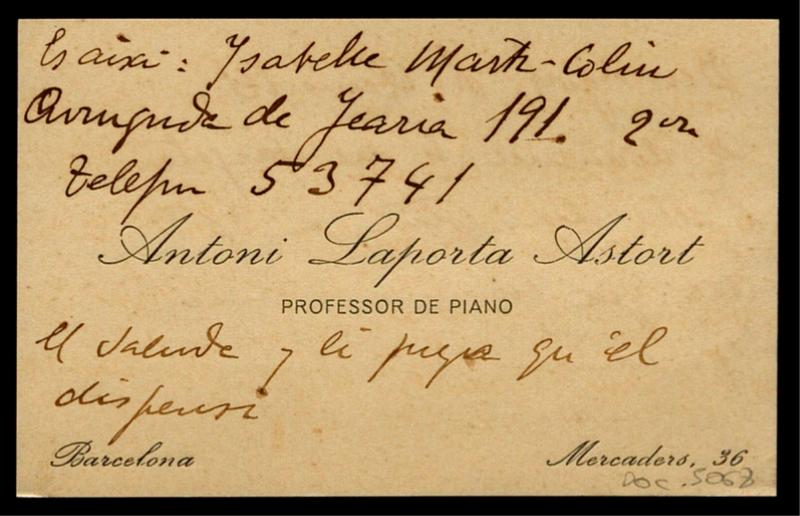 Es aixi: Ysabelle Marti-Colin
Avinguda de Icaria 191. 2on
telefon 53741
Antoni Laporta Astort
PROFESSOR DE PIANO
El saluda y li prega qu'el
dispensi
Barcelona
Mercaders, 36
DOC. 5068